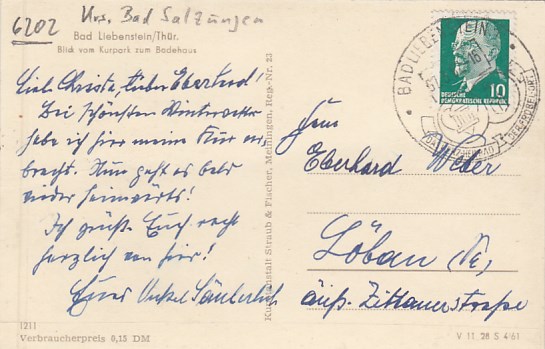 6202 Krs. Bad Salzungen
Bad Liebenstein/Thür.
Blick vom Kurpark zum Badehaus
Liebe Christa, lieber Eberhard!
Bei schönstem Winterwetter
habe ich hier meine Kur ver-
bracht. Nun geht es bald
wieder heimwärts!
Ich grüße Euch recht
herzlich von hier!
Euer Onkel
1211
Verbraucherpreis 0,15 DM
Kunstanstalt Straub & Fischer, Meiningen, Reg.-Nr. 23
BAD LIEBENSTEIN
10
DEUTSCHE
DEMOKRATISCHE REPUBLIK
Herrn
Eberhard Weber
Löbau
äuß. Zittauerstraße
V 11 28 S 4/61